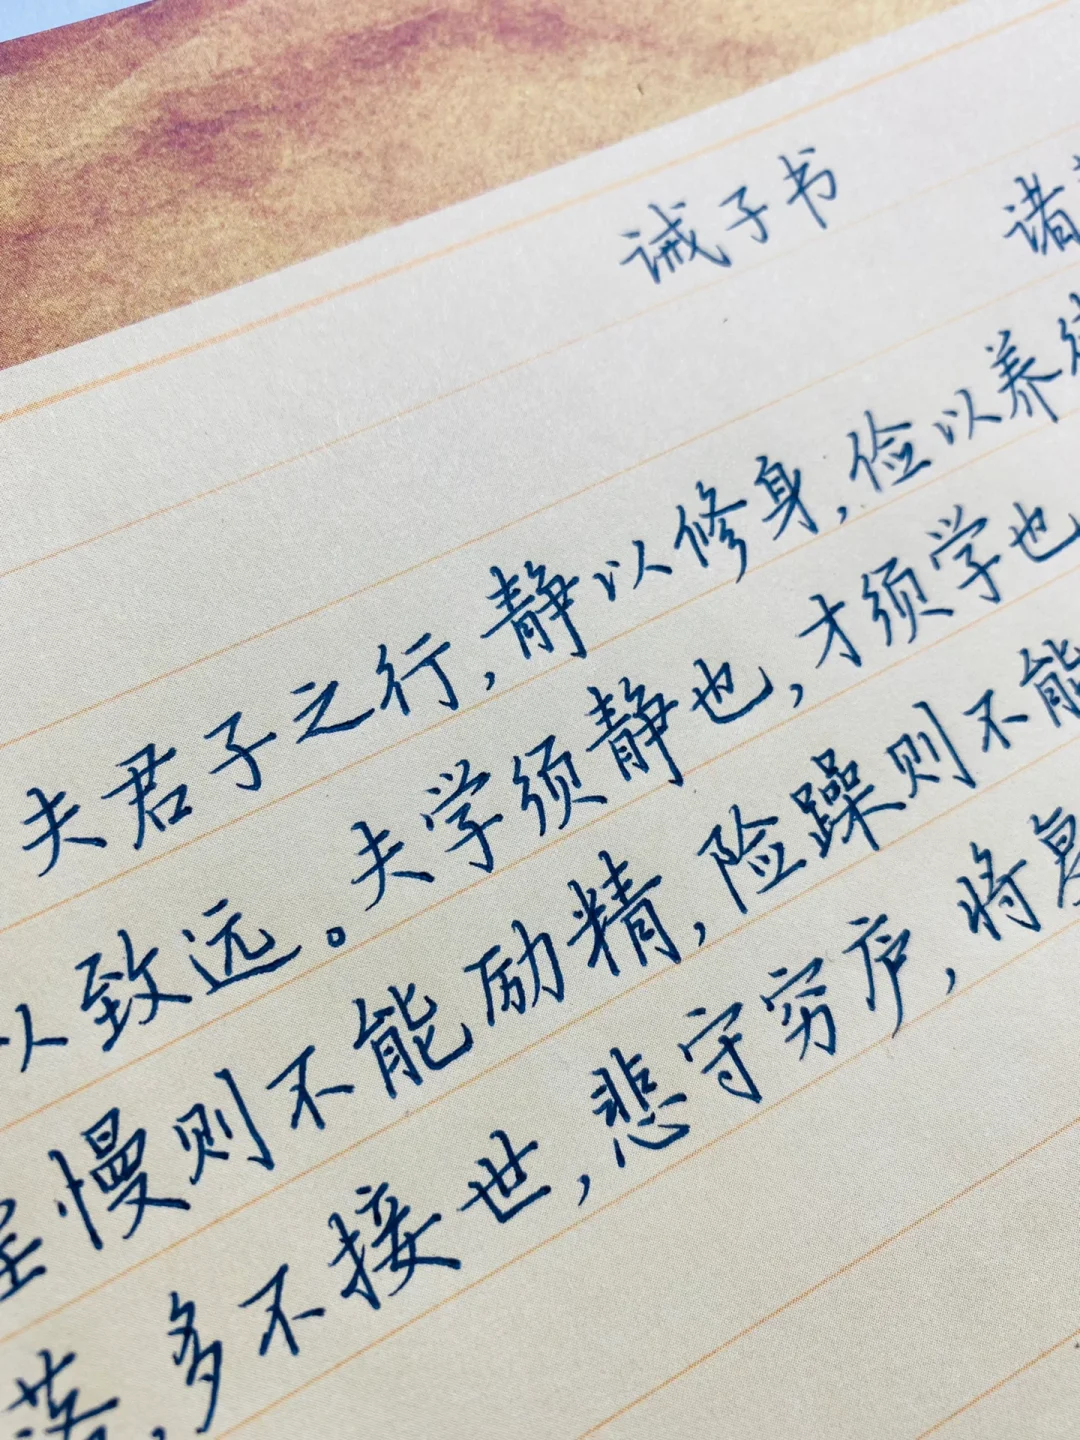 诫子书 诸
夫君子之行,静以修身,俭以养
以致远。夫学须静也,才须学也
慢则不能励精,险躁则不能
落,多不接世,悲守穷庐,将复